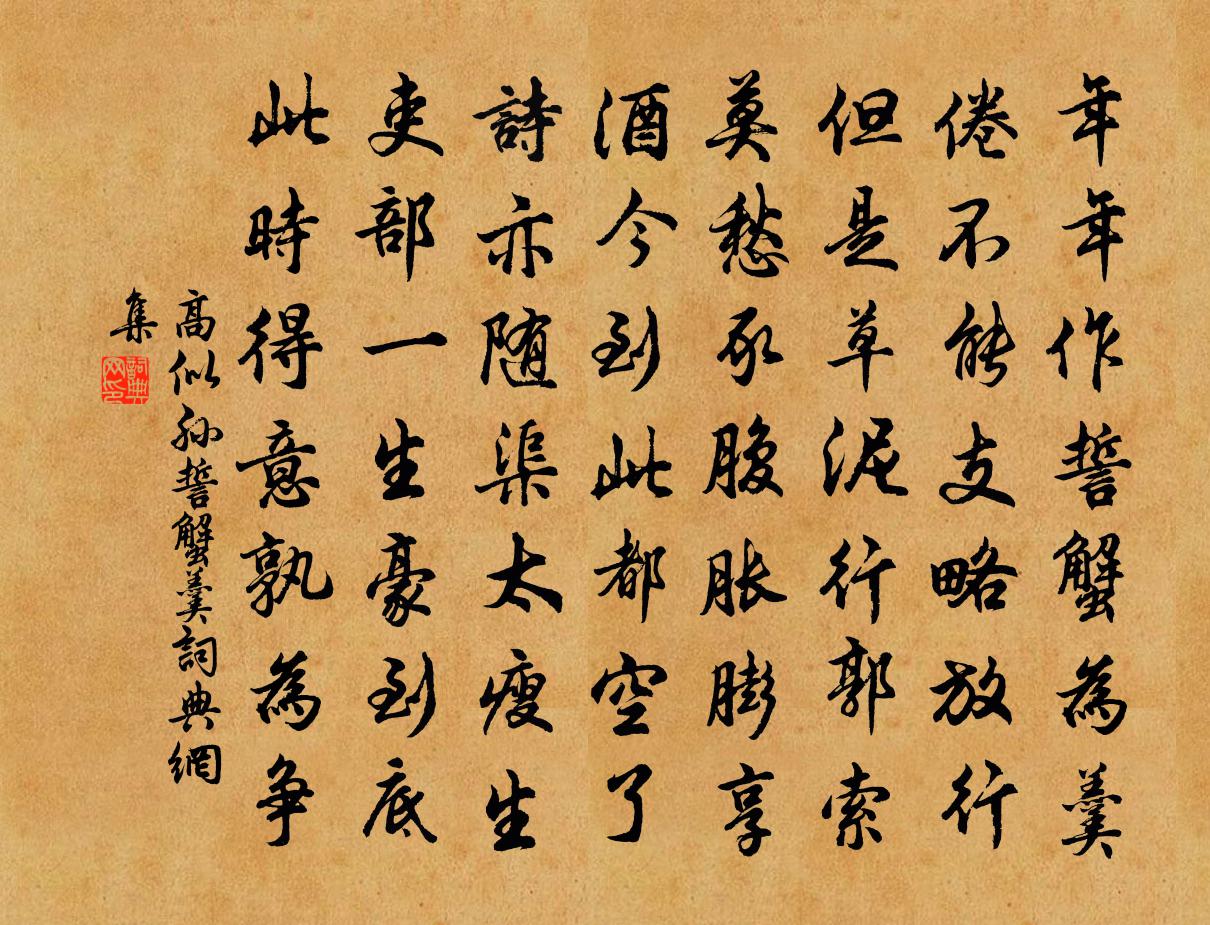 年年作誓蟹為羹
倦不能支略放行
但是草泥行郭索
莫愁豕腹脹膨享
酒今到此都空了
詩亦随渠太瘦生
吏部一生豪到底
此時得意孰為争
高似孙誓蟹羹詞典網
集
詞典
网印